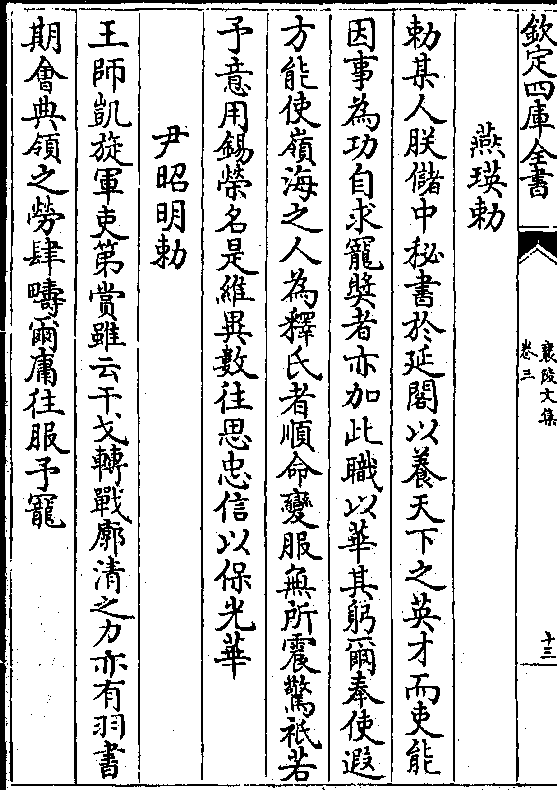 欽定四庫全書
襄陵文集
卷三
十三
燕瑛勅
勅某人朕儲中秘書於延閣以養天下之英才而吏能
因事為功自求寵奬者亦加此職以華其躬爾奉使遐
方能使嶺海之人為釋氏者順命變服無所震驚祗若
予意用錫榮名是維異數往思忠信以保光華
尹昭明勅
王師凱旋軍吏第賞雖云干戈轉戰廓清之力亦有羽書
期會典領之勞肆疇爾庸往服予寵